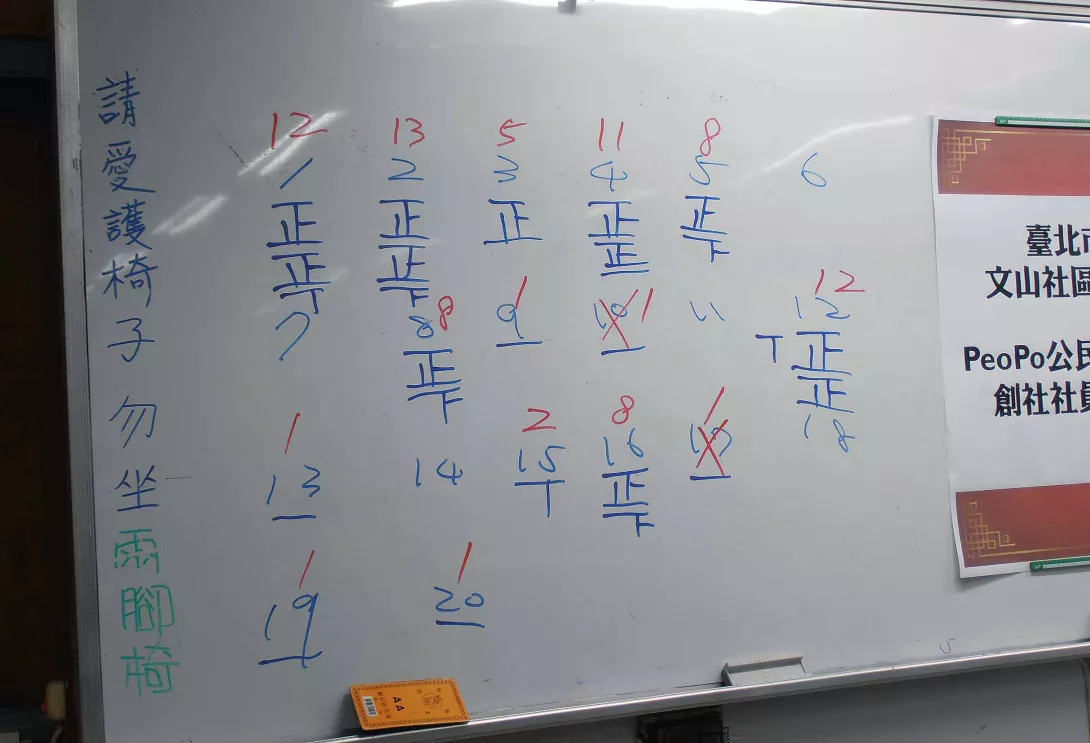 請愛護椅子勿坐兩腳椅
12 13 5 11 8
1 2 3 4 5 6
正 正 正 正 正
正 正 正
8 1 1 12
7 8 9 10 11 12
正 T 正
正
1 2 8 1
13 14 15 16 17 18
一 T 正 一
1 1
19 20
一 一
臺北市
文山社區
PeoPo公民
創社社員
AA